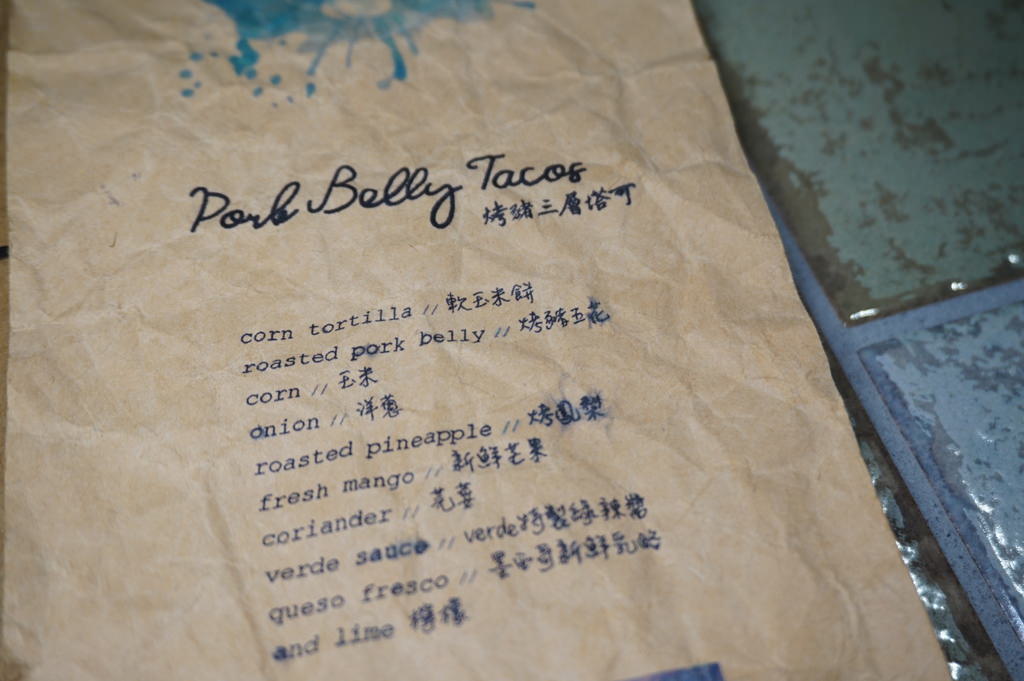 Pork Belly Tacos
烤豬三層塔可
corn tortilla // 軟玉米餅
roasted pork belly // 烤豬五花
corn // 玉米
onion // 洋蔥
roasted pineapple // 烤鳳梨
fresh mango // 新鮮芒果
coriander // 芫荽
verde sauce // verde特製綠辣醬
queso fresco // 墨西哥新鮮乳酪
and lime 檸檬